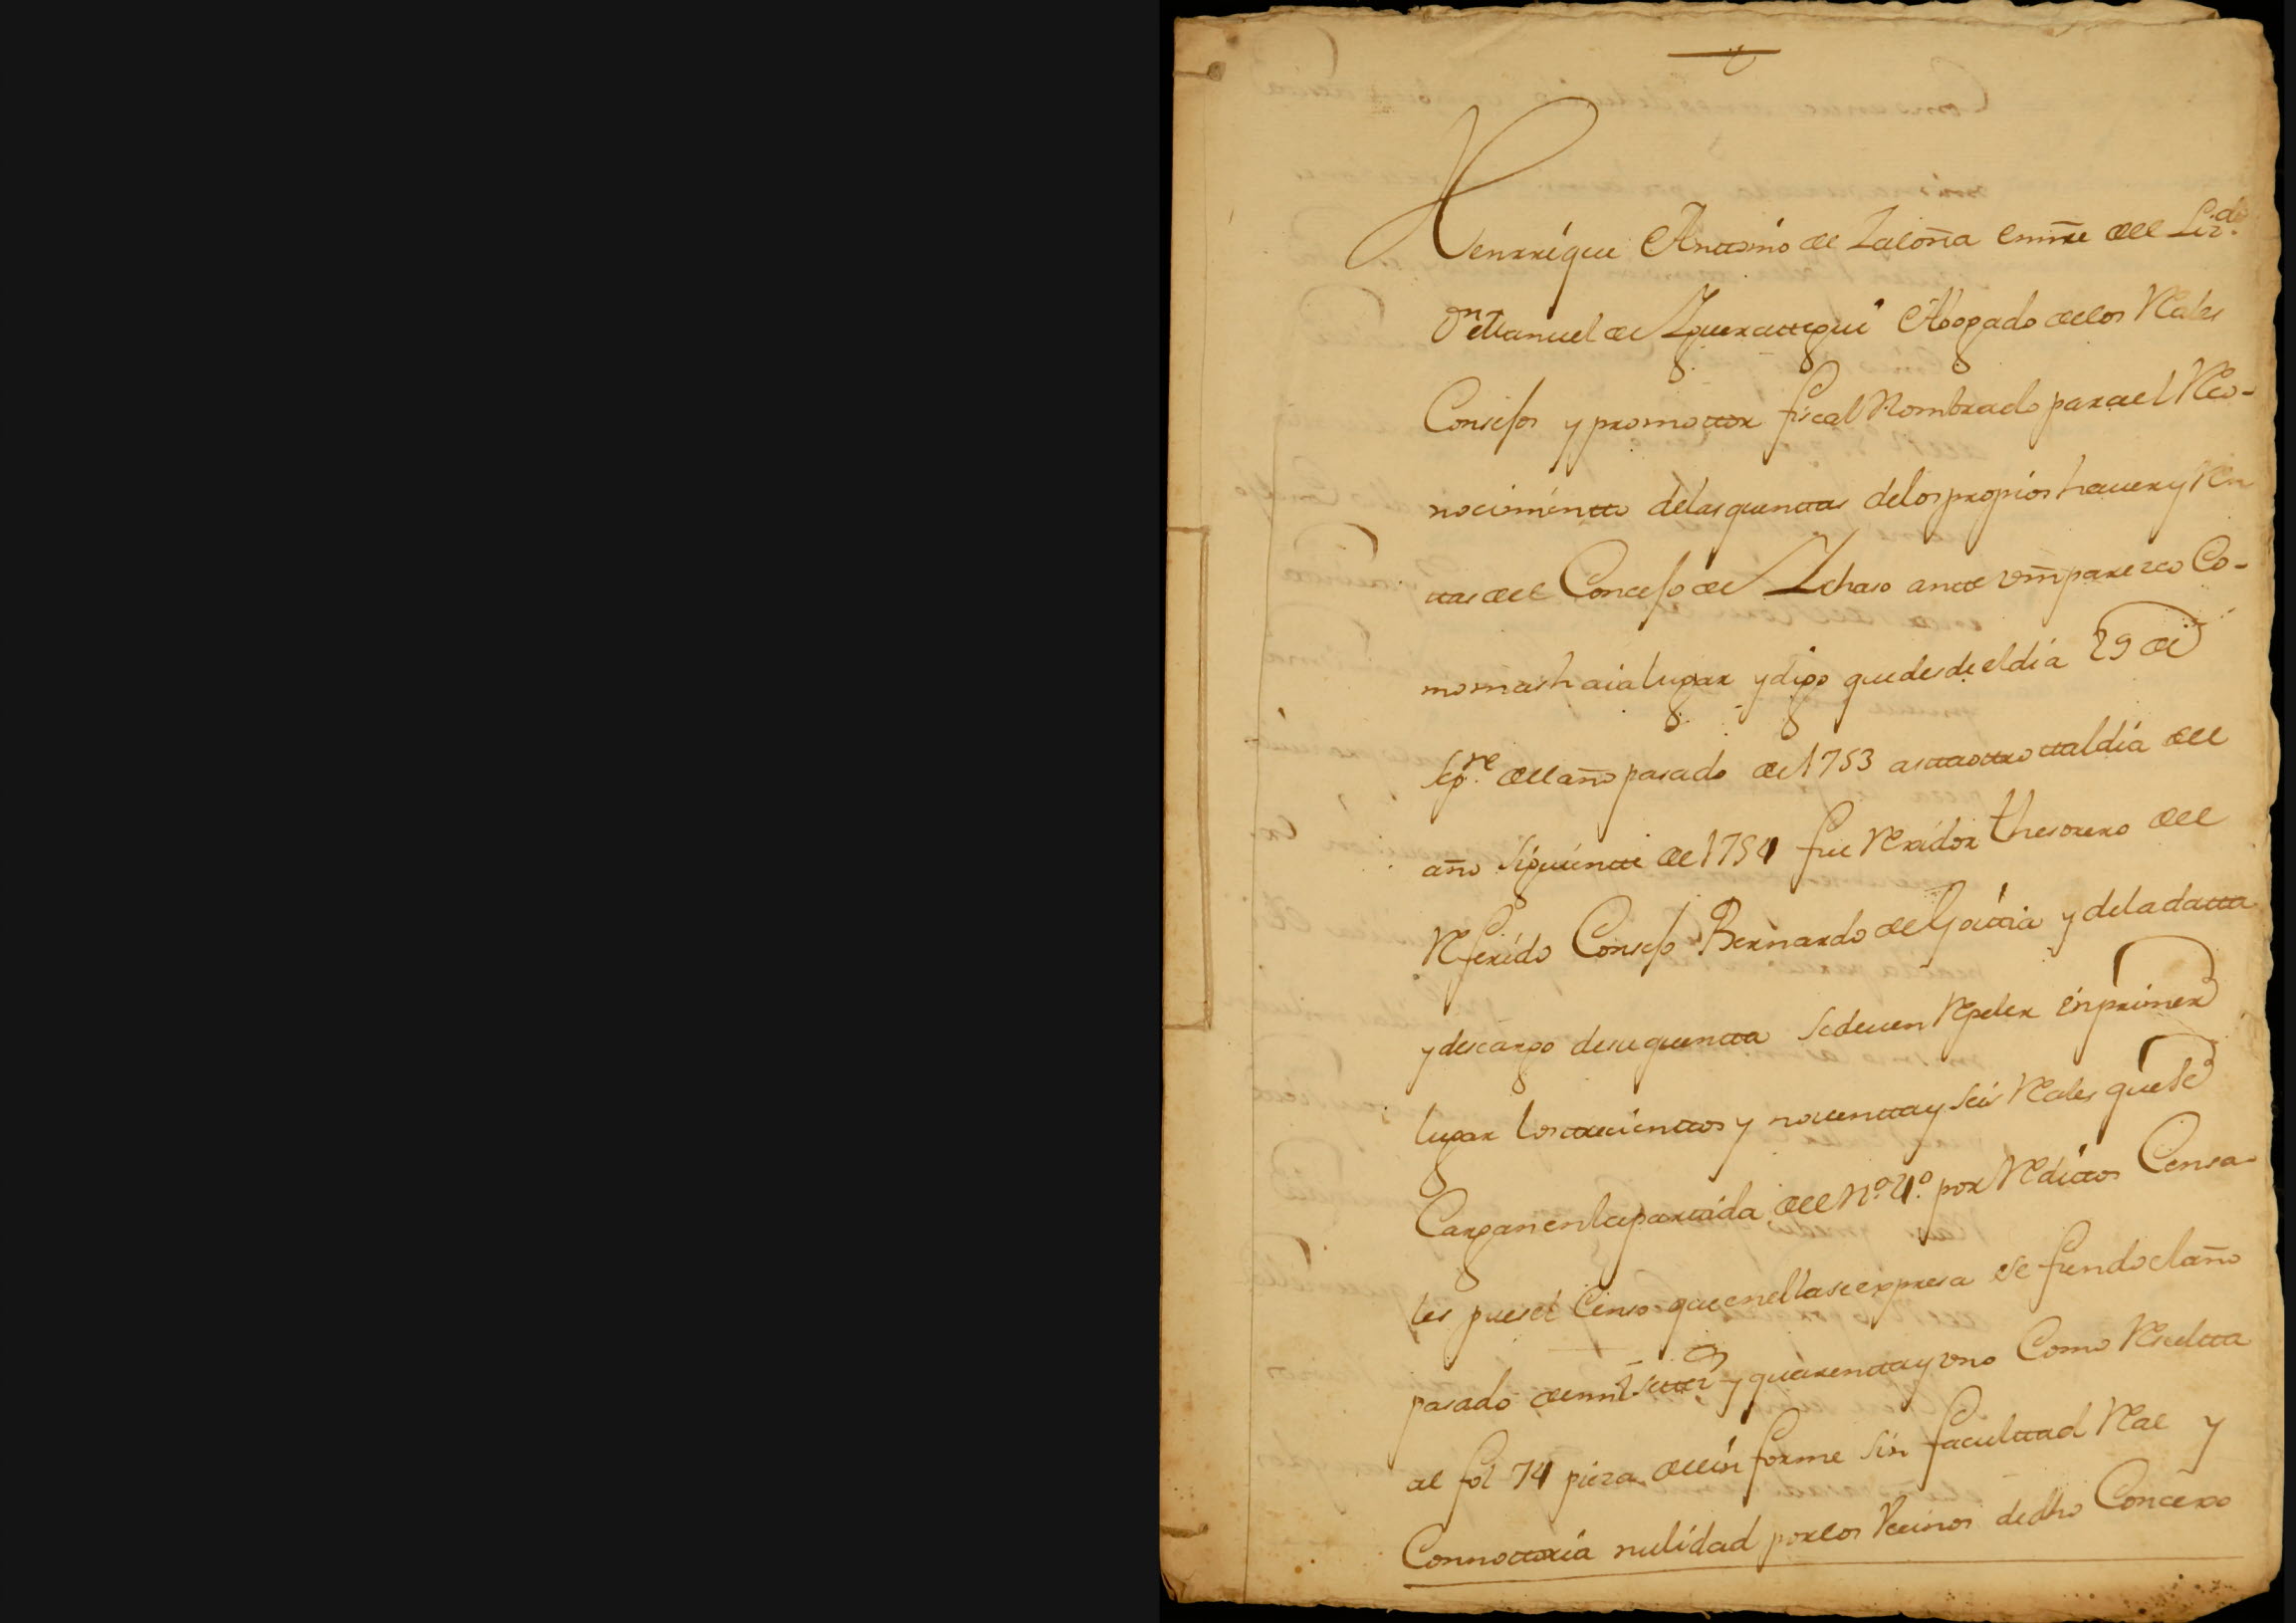 Henrrique Antonio de Zaloña en nr̄e del Liz.do
Dn Manuel de Yguerattegui Abogado de los Rales
Consejos y promottor fiscal Nombrado para el Reco-
nocimientto de las quenttas de los propios hauer y Ren
ttas del Concejo de Ychaso antte vm̄ parezco Co-
mo mas haia lugar y digo que desde el dia 29 de
Sep.re del año pasado de 1753 astta ottro ttal dia del
año siguientte de 1754 fue Rexidor thesorero del
Referido Consejo Bernardo de Goittia y de la datta
y descargo de su quentta se deuen Repeler en primer
lugar los ttrecienttos y nouentta y seis Reales que se
Cargan en la parttida del N.o 4.o por Redittos Censa-
les pues el Censo que en ella se expresa se fundo el año
pasado de mil settez.s y quarentta y vno Como Resultta
al fol 74 pieza del in forme sin facultad Ral y
Con nottoria nulidad por los Vecinos de dho Concexo